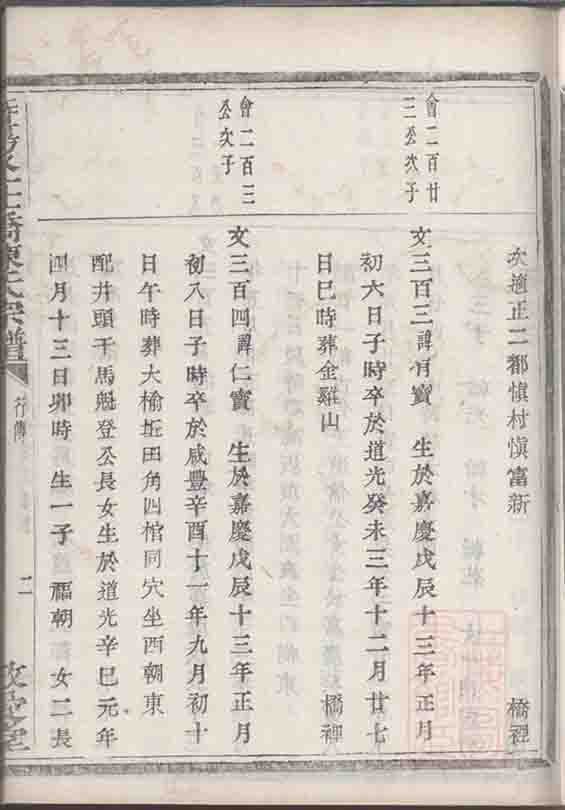 次適正二都愼村愼富新
橋裡
會二百廿
三公次子
文三百三諱有寶 生於嘉慶戊辰十三年正月
初六日子時卒於道光癸未三年十二月廿七
日巳時葬金雞山
橋裡
會二百三
公次子
文三百四諱仁寶 生於嘉慶戊辰十三年正月
初八日子時卒於咸豐辛酉十一年九月初十
日午時葬大楡坵田角四棺同穴坐西朝東
配井頭干馬魁登公長女生於道光辛巳元年
四月十三日卯時 生一子 福朝 女二長
橋陳氏宗譜
行傳
二